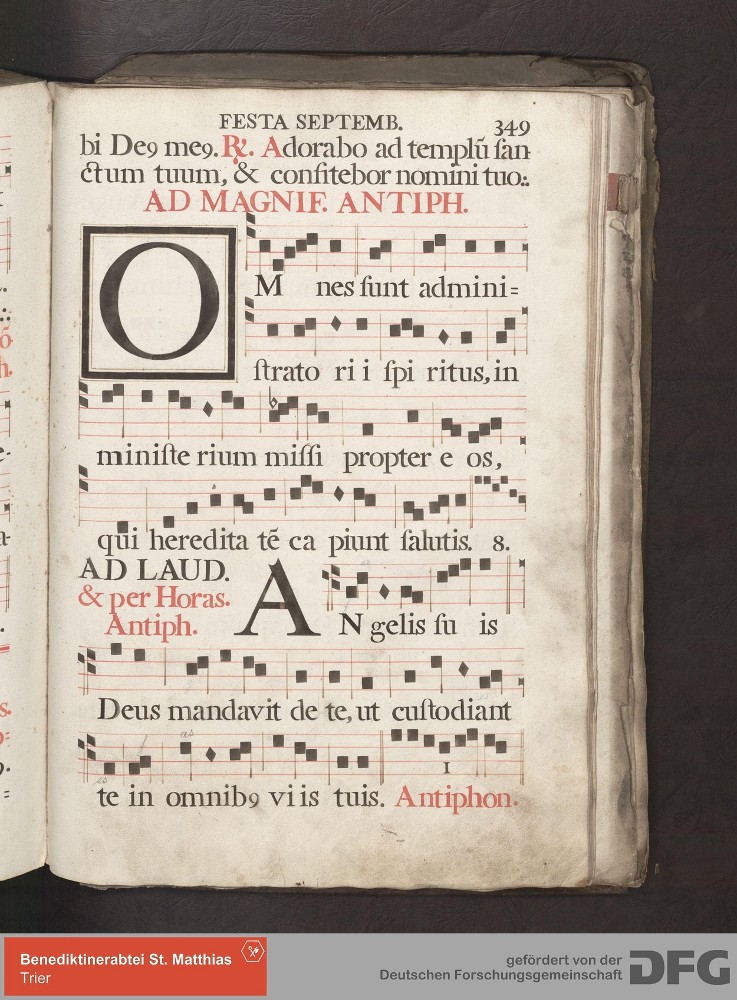 FESTA SEPTEMB. 349
bi De9 me9. R/. Adorabo ad templū san-
ctum tuum, & confitebor nomini tuo:.
AD MAGNIF. ANTIPH.
OM nes sunt admini=
strato ri i spi ritus, in
ministe rium missi propter e os,
qui heredita tē ca piunt salutis. 8.
AD LAUD.
& per Horas.
Antiph.
AN gelis su is
Deus mandavit de te, ut custodiant
1
te in omnib9 vi is tuis. Antiphon.
Benediktinerabtei St. Matthias
Trier
gefördert von der
Deutschen Forschungsgemeinschaft
DFG